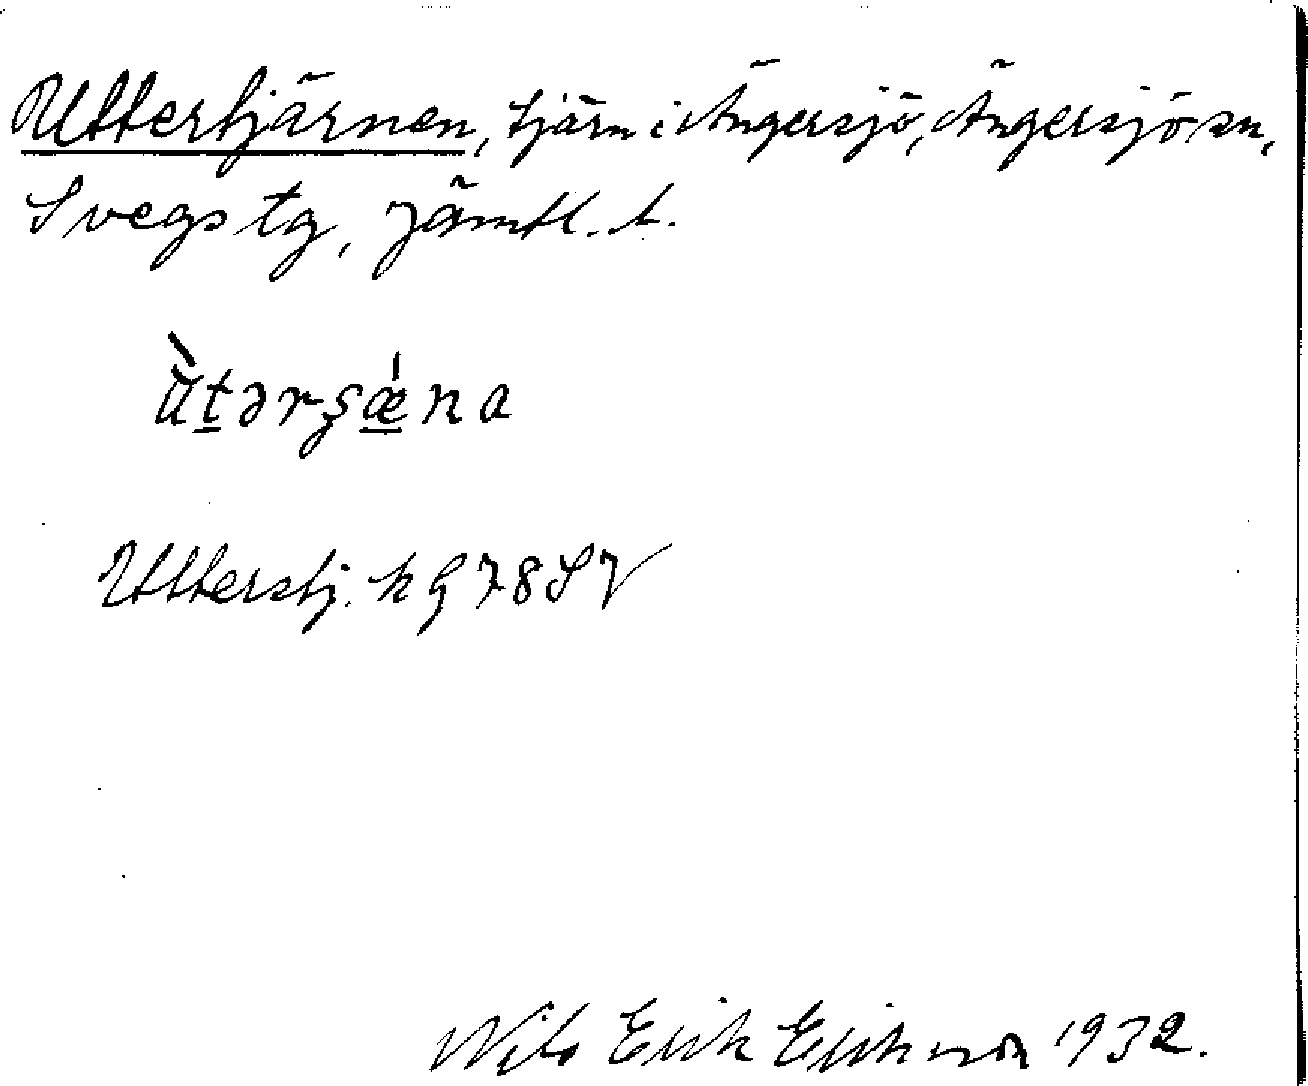 Uttertjärnen, tjärn i Ängersjö, Ängersjö sn,
Svegs tg, Jämtl. l.
ùt̲ərʂǽ̲na
Utterstj. k G 78 S V
Nils Erik Erikson 1932.